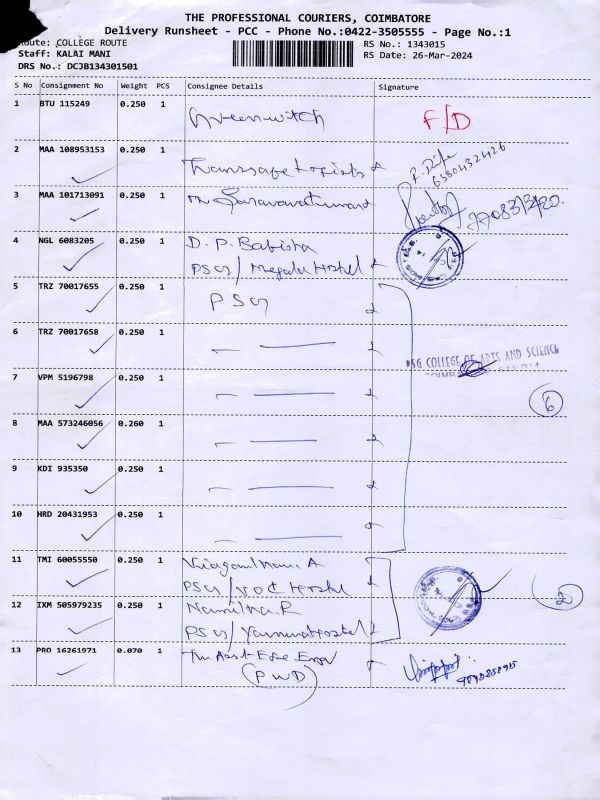 THE PROFESSIONAL COURIERS, COIMBATORE
Delivery Runsheet - PCC - Phone No.:0422-3505555 - Page No.:1
Route: COLLEGE ROUTE
Staff: KALAI MANI
DRS No.: DCJB134301501
RS No.: 1343015
RS Date: 26-Mar-2024
S No Consignment No Weight PCS Consignee Details Signature
1 BTU 115249 0.250 1 F/D
2 MAA 108953153 0.250 1
6380432426
3 MAA 101713091 0.250 1
4 NGL 6083205 0.250 1 D. P. Babisha
PSG / Hostel
5 TRZ 70017655 0.250 1 PSG
6 TRZ 70017658 0.250 1
PSG COLLEGE OF ARTS AND SCIENCE
7 VPM 5196798 0.250 1
6
8 MAA 573246056 0.260 1
9 KDI 935350 0.250 1
10 HRD 20431953 0.250 1
11 TMI 60055550 0.250 1
PSG / Hostel
2
12 IXM 505979235 0.250 1 Namitha.R
PSG / Hostel
13 PRO 16261971 0.070 1
(PWD)